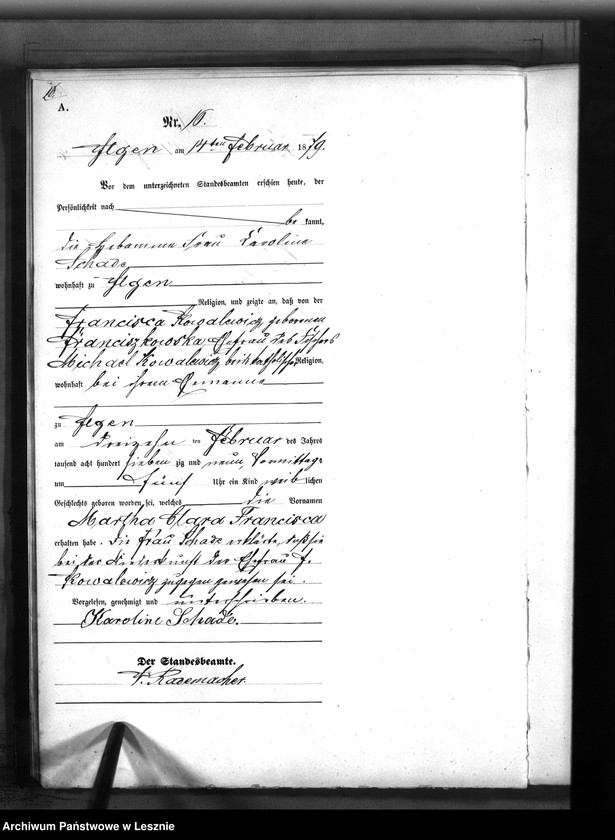 A.
Nr. 16.
Ilgen am 14ten Februar 1879.
Vor dem unterzeichneten Standesbeamten erschien heute, der
Persönlichkeit nach
be kannt,
die Hebamme Frau Caroline
Schade
wohnhaft zu Ilgen
Religion, und zeigte an, daß von der
Francisca Kowalewicz geborenen
Franciszkowska Ehefrau des
Michael Kowalewicz beide katholischer Religion,
wohnhaft bei ihrem Ehemanne
zu Ilgen
am dreizehn ten Februar des Jahres
tausend acht hundert sieben zig und neun, Vormittags
um fünf Uhr ein Kind weib lichen
Geschlechts geboren worden sei, welches die Vornamen
Martha Clara Francisca
erhalten habe. Die Frau Schade erklärte, daß sie
bei der Niederkunft der Ehefrau F.
Kowalewicz zugegen gewesen sei.
Vorgelesen, genehmigt und unterschrieben.
Karoline Schade.
Der Standesbeamte.
Rademacher
Archiwum Państwowe w Lesznie